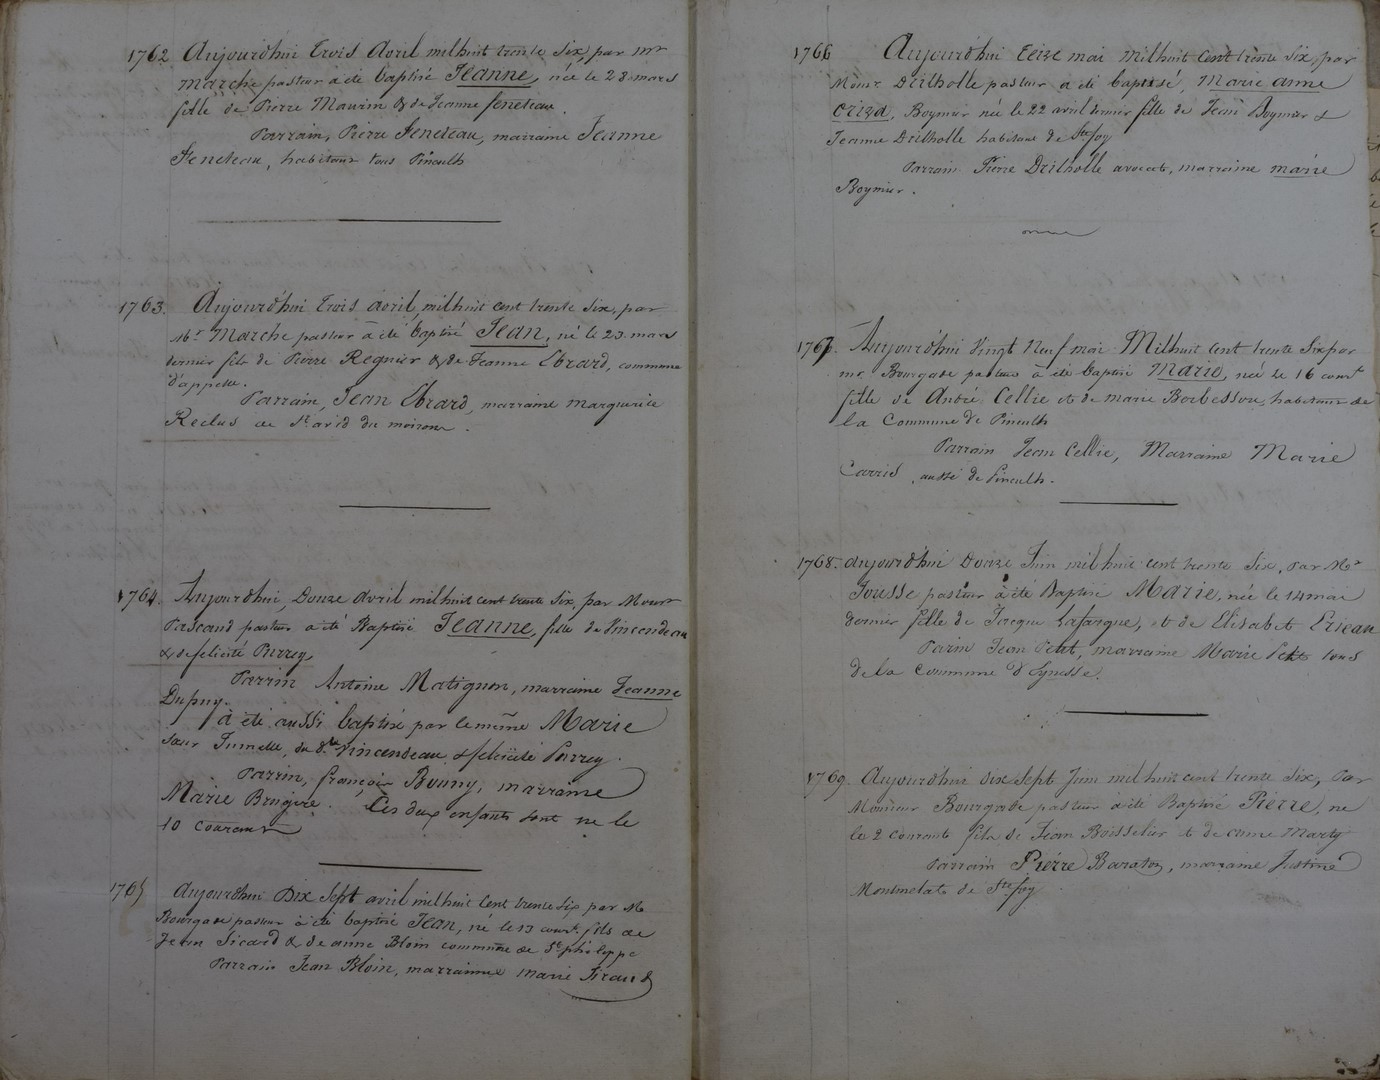 1762 Aujourdhui trois avril mil huit trente six, par mr
Marche pasteur a été baptisé Jeanne, née le 28 mars
fille de Pierre Maurin & de Jeanne feneteau.
Parrain, Pierre Feneteau, marraine Jeanne
Feneteau, habitans tous Pineuilh
1763. Aujourdhui trois avril, mil huit cent trente six, par
Mr Marche pasteur à été baptisé Jean, né le 23 mars
dernier fils de Pierre Regnier & de Jeanne Ebrard, commune
d'appelle.
Parrain, Jean Ebrard, marraine Marguerite
Reclus de St avid du moiron.
1764. Aujourdhui, Douze avril mil huit cent trente six, par Monsr
Pascaud pasteur a été Baptisé Jeanne, fille de Vincendeau
& de felicité Purrey,
Parrin Antoine Matignon, marraine Jeanne
Dupuy.
à été aussi baptisé par le même Marie
sœur Jumelle, du dt Vincendeau, & felicité Purrey.
Parrin, françois Bonny, marraine
Marie Brugère. Ces deux enfants sont né le
10 Courant
1765 Aujourdhui Dix Sept avril mil huit Cent trente Six par Mr
Bourgade pasteur à été baptisé Jean, né le 13 court fils de
Jean Sicard & de anne Bloin commune de St philippe
Parrain Jean Bloin, marrainne marie Giraud
1766 Aujourdhui treize mai Mil huit Cent trente Six, par
Monsr Drilholle pasteur a été baptisé, Marie anne
Boymier né le 22 avril dernier fille de Jean Boymier &
Jeanne Drilholle habitans de Ste foy
Parrain Pierre Drilholle avocat, marraine marie
Boymier.
1767. Aujourdhui Vingt Neuf mai Mil huit Cent trente Six par
mr Bourgade pasteur à été baptisé Marie, née le 16 court
fille de André Cellie et de marie Borbesson, habitans de
la Commune de Pineuilh
Parrain Jean Cellie, Marraine Marie
Carrié, aussi de Pineuilh.
1768. Aujourdhui Douze Juin mil huit cent trente Six, par Mr
Jousse pasteur à été Baptisé Marie, née le 14 mai
dernier fille de Lafargue, et de Elisabet Erieau
Parin Jean Petit, marraine Marie Petit tous
de la Commune d'Eynesse.
1769. Aujourd'hui dix Sept Juin mil huit cent trente Six, Par
Monsieur Bourgade pasteur à été Baptisé Pierre, né
le 2 Courant fils de Jean Boisselier et de anne Marty
Parrain Pierre Baraton, marraine Justine
Monmelats de Ste foy